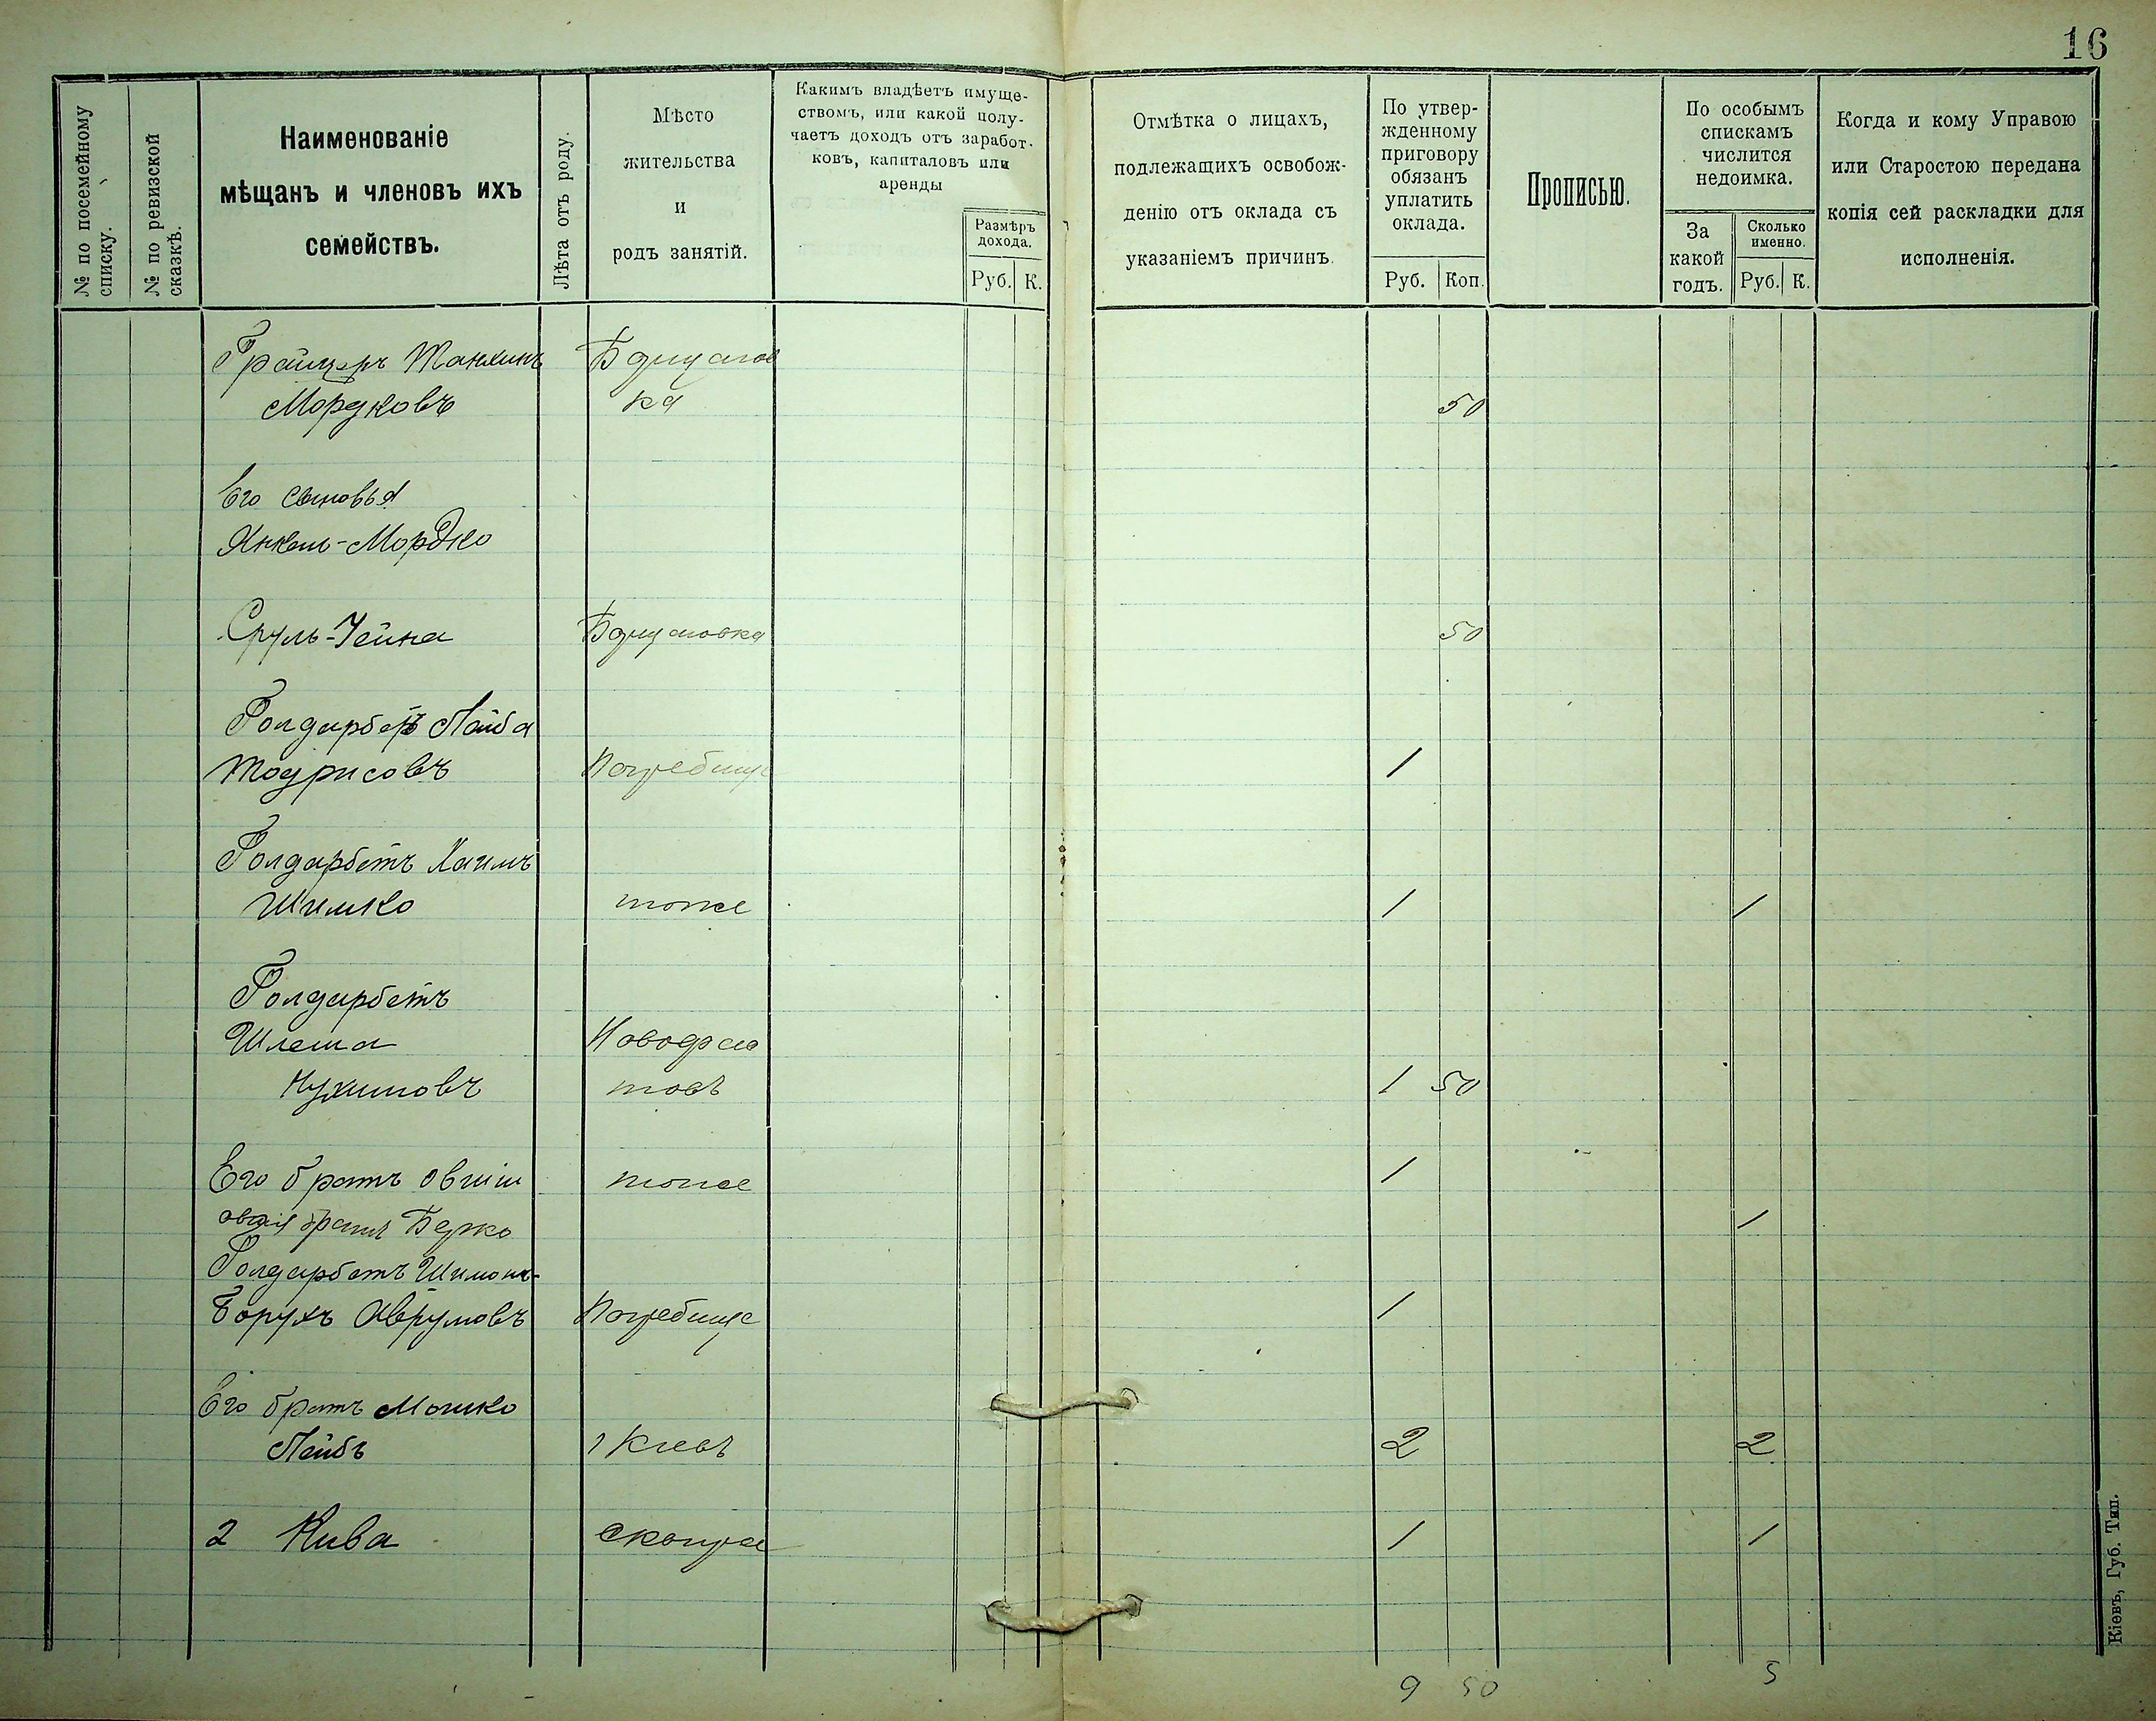 16
№ по посемейному списку.
№ по ревизской сказкѣ.
Наименованіе
мѣщанъ и членовъ ихъ
семействъ.
Лѣта отъ роду.
Мѣсто
жительства
и
родъ занятій.
Какимъ владѣетъ имуще-
ствомъ, или какой полу-
чаетъ доходъ отъ заработ-
ковъ, капиталовъ или
аренды
Размѣръ
дохода.
Руб. К.
Отмѣтка о лицахъ,
подлежащихъ освобож-
денію отъ оклада съ
указаніемъ причинъ.
По утвер-
жденному
приговору
обязанъ
уплатить
оклада.
Руб. Коп.
Прописью.
По особымъ
спискамъ
числится
недоимка.
За
какой
годъ.
Сколько
именно.
Руб. К.
Когда и кому Управою
или Старостою передана
копія сей раскладки для
исполненія.
Танхинъ
Мордковъ ка 50
Его сыновья
Янкель-Мордко
Сруль-Чейна 50
Голдарбетъ Лейба
Погребище 1
Голдарбетъ Хаимъ
Шимко тоже 1 1
Голдарбетъ
Шлема
Нухимовъ 1 50
Его братъ Овшій тоже 1
братъ Берко 1
Голдарбетъ Шимонъ-
Борухъ Аврумовъ Погребище 1
Его братъ Мошко
Лейбъ г Кіевъ 2 2
2 Кива Сквира 1 1
9 50 5
Кіевъ, Губ. Тип.